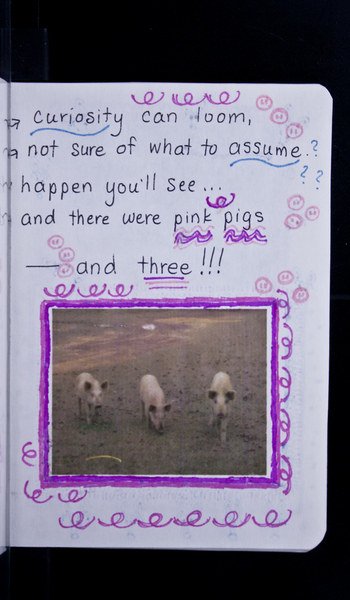 curiosity can loom,
not sure of what to assume.?
? ?
happen you'll see...
and there were pink pigs
— and three!!!